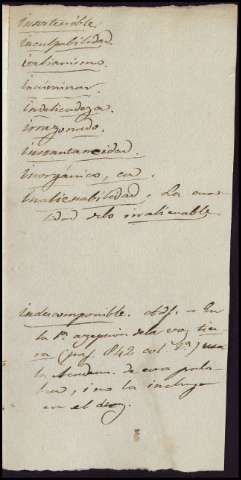 Insostenible.
Inculpabilidad.
italianismo.
Incinerar.
Indelicadeza.
irrazonado.
Instantaneidad.
Inorgánico, ca.
Inalienabilidad. La cua-
lidad de lo inalienable.
indescomponible. adj. - En
la 1ª acepcion de la voz tie-
rra (pag. 842 col. 1ª) usa
la Academ. de esta pala-
bra, i no la incluye
en el dicc.